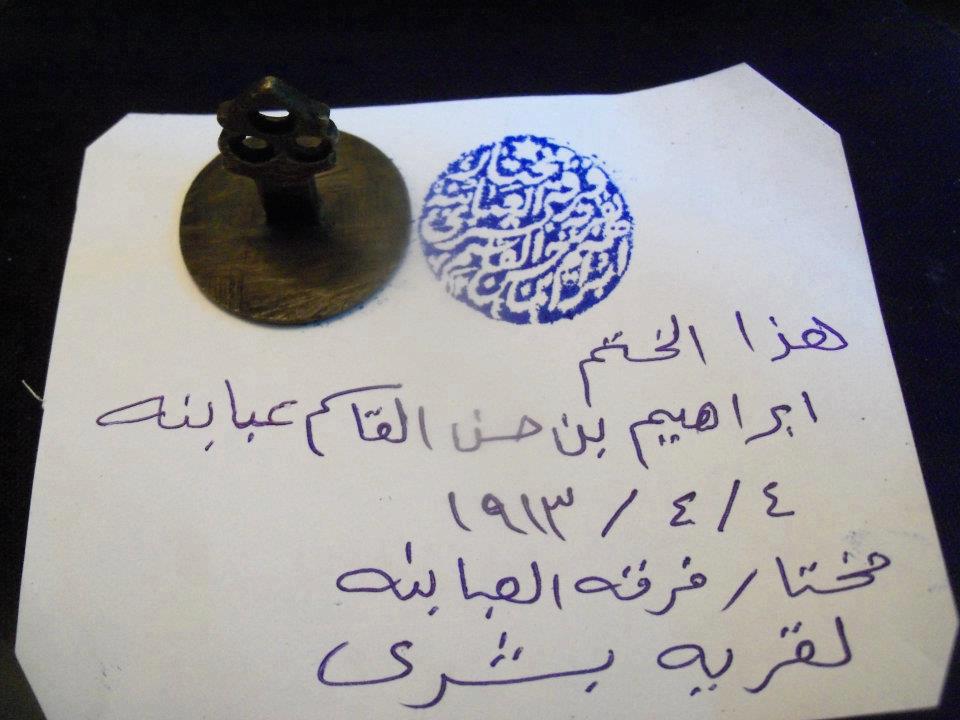 هذا الختم
ابراهيم بن حسن القاسم عبابنه
٤ / ٤ / ١٩١٣
مختار فرقه العبابنه
لقريه بشرى